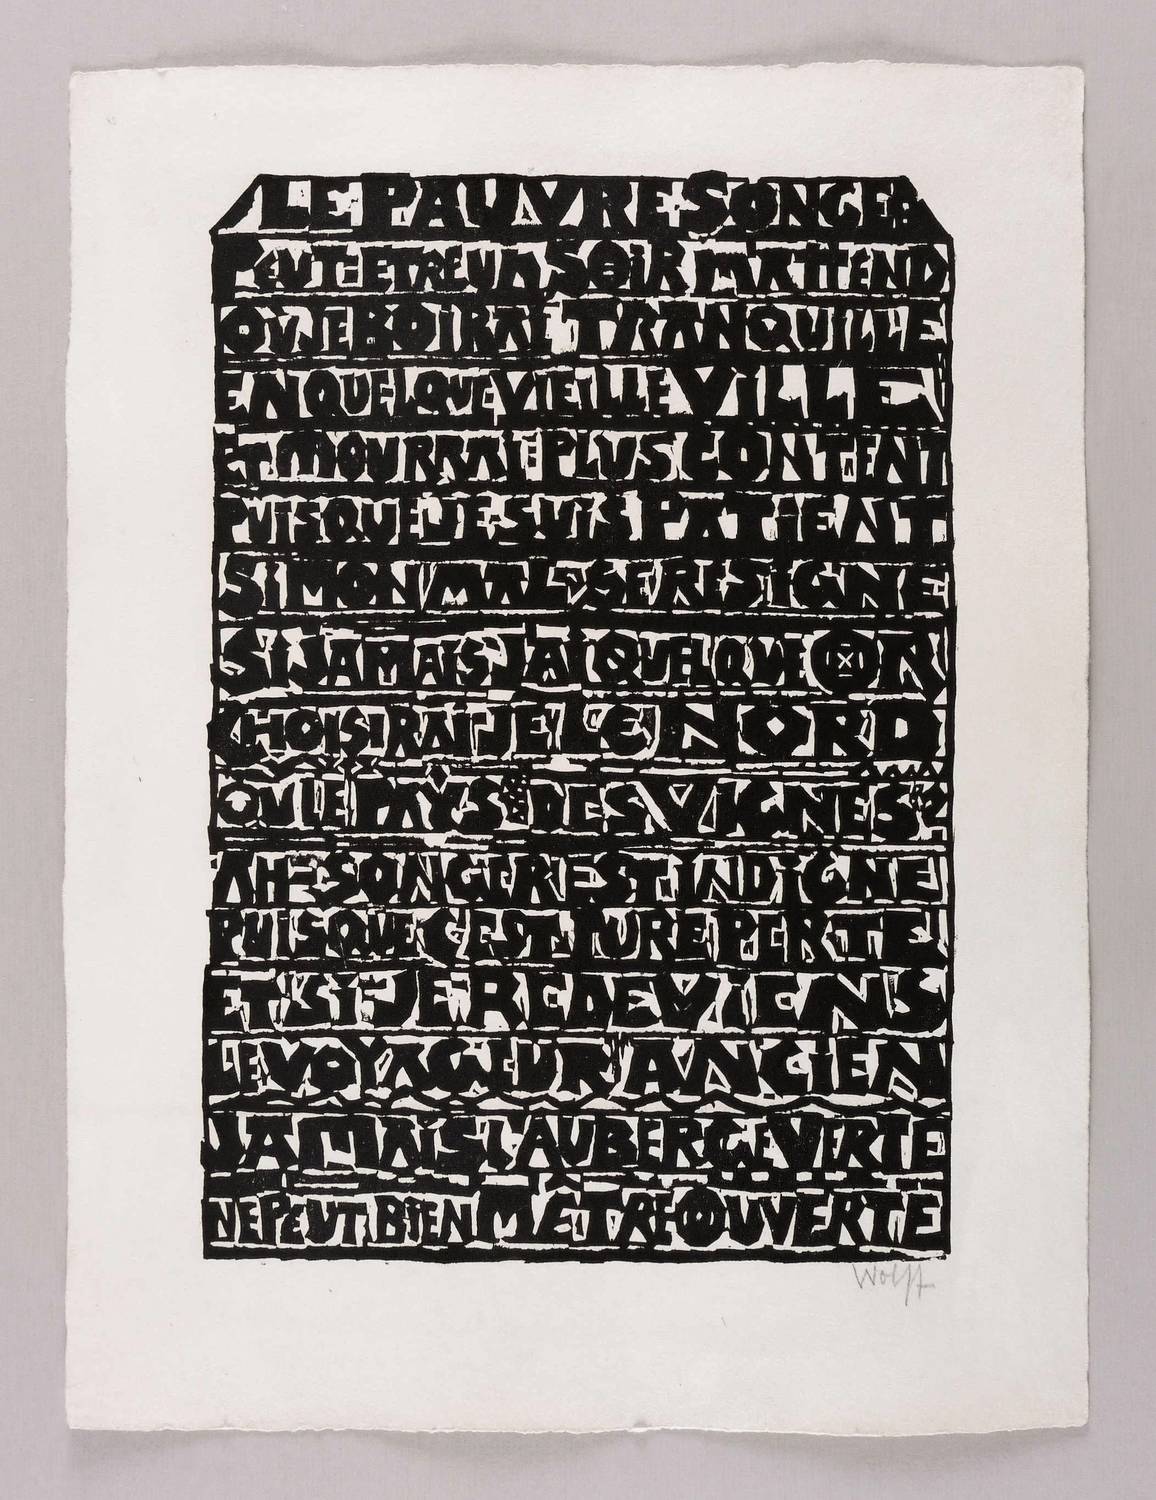 LE PAUVRE SONGE
PEUT-ETRE UN SOIR MATTEND
OU JE BOIRAI TRANQUILLE
EN QUELQUE VIEILLE VILLE
ET MOURRAI PLUS CONTENT
PUISQUE JE SUIS PATIENT
SI MON MAL SE RESIGNE
SI JAMAIS JAI QUELQUE OR
CHOISIRAI JE LE NORD
OU LE PAYS DES VIGNES?
AH SONGER EST INDIGNE
PUISQUE C'EST PURE PERTE
ET SI JE REDEVIENS
LE VOYAGEUR ANCIEN
JAMAIS L'AUBERGE VERTE
NE PEUT BIEN METRE OUVERTE
Wolff